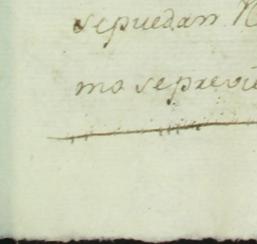 sepuedan
mo seprevie